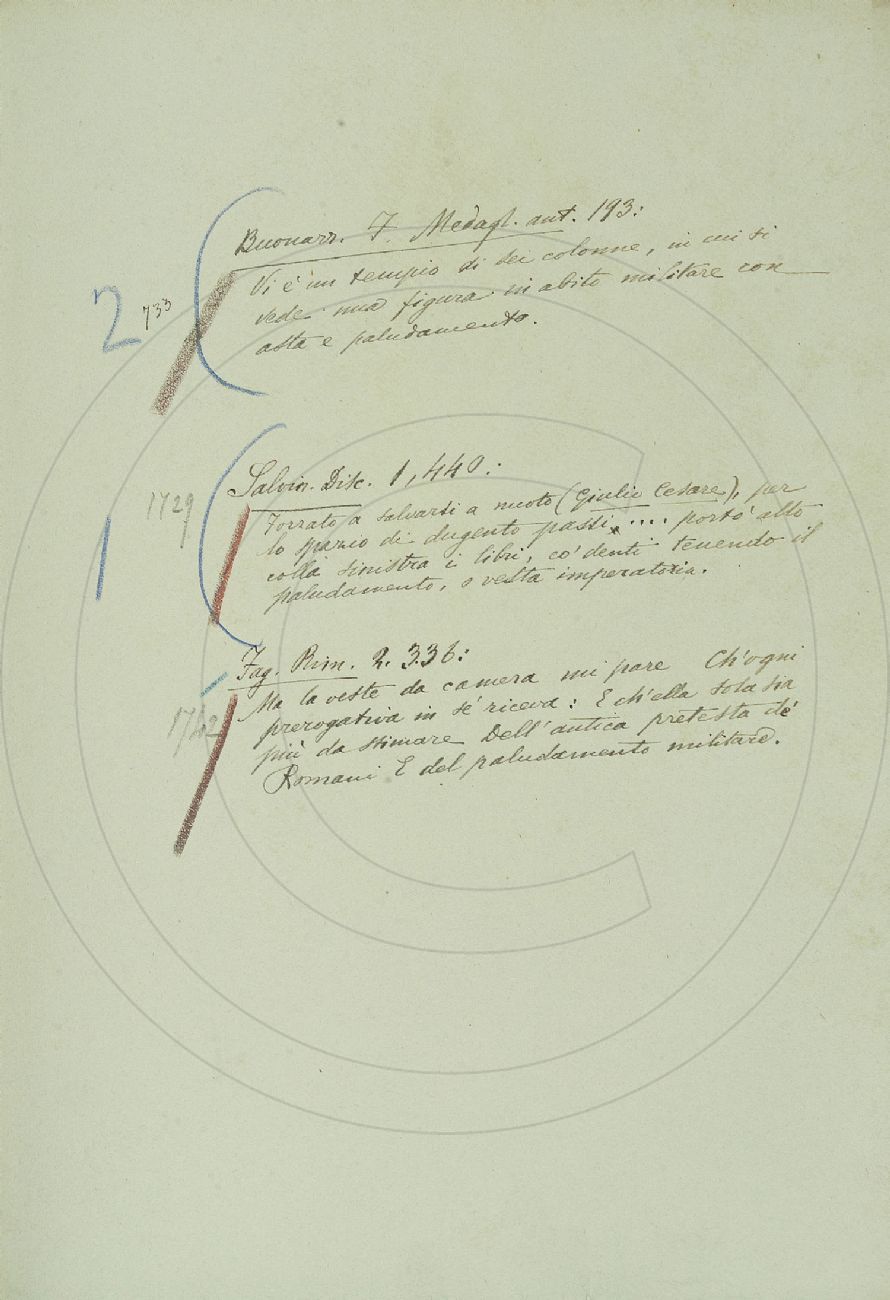 Buonarr. F. Medagl. ant. 193:
2 733
Vi è un tempio di sei colonne, in cui si
vede una figura in abito militare con
asta e paludamento.
Salvin. Disc. 1, 440:
1729
Forzato a salvarsi a nuoto (Giulio Cesare), per
lo spazio di dugento passi, .... portò alto
1
colla sinistra i libri, co' denti tenendo il
paludamento, o vesta imperatoria.
Fag. Rim. 2. 336:
Ma la veste da camera mi pare Ch'ogni
prerogativa in sè riceva: E ch'ella sola sia
1742
più da stimare Dell'antica pretesta de'
Romani E del paludamento militare.